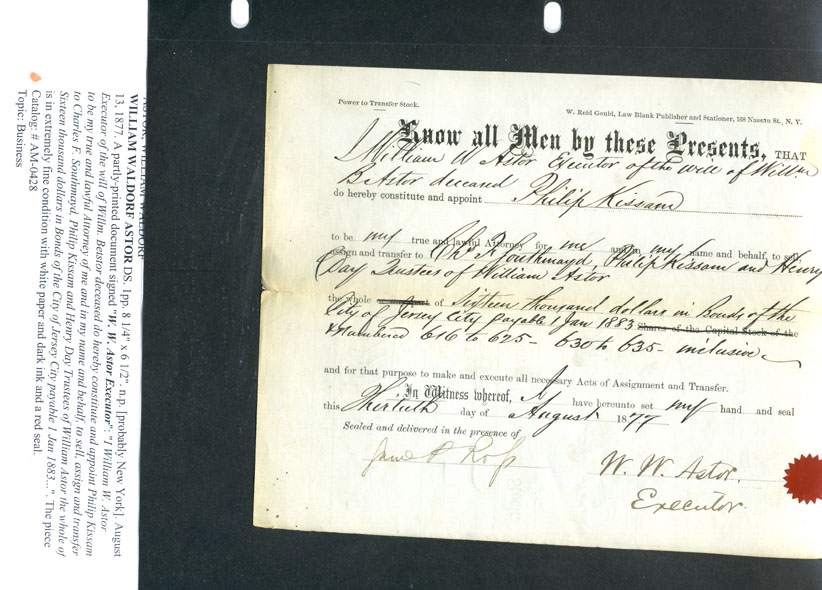 ASTOR, WILLIAM WALDORF
WILLIAM WALDORF ASTOR DS. 1pp. 8 1/4" x 6 1/2". n.p. [probably New York]. August
13, 1877. A partly-printed document signed "W. W. Astor Executor": "I William W. Astor
Executor of the will of Willm. Betastor deceased do hereby constitute and appoint Philip Kissam
to be my true and lawful Attorney of me and in my name and behalf, to sell, assign and transfer
to Charles F. Southmayd, Philip Kissam and Henry Day Trustees of William Astor the whole of
Sixteen thousand dollars in Bonds of the City of Jersey City payable 1 Jan 1883...". The piece
is in extremely fine condition with white paper and dark ink and a red seal.
Catalog: # AM-0428
Topic: Business
Power to Transfer Stock.
W. Reid Gould, Law Blank Publisher and Stationer, 168 Nassau St., N. Y.
Know all Men by these Presents, THAT
I William W Astor Executor of the will of Willm
B Astor deceased
do hereby constitute and appoint Philip Kissam
to be my true and lawful Attorney for me and in my name and behalf, to sell,
assign and transfer to Chs F Southmayd, Philip Kissam and Henry
Day Trustees of William Astor
the whole part of Sixteen thousand dollars in Bonds of the
City of Jersey City payable 1 Jan 1883 Shares of the Capital Stock of the
& numbered 616 to 625 - 630 to 635 - inclusive
and for that purpose to make and execute all necessary Acts of Assignment and Transfer.
In Witness whereof, I have hereunto set my hand and seal
this Thirtieth day of August 1877
Sealed and delivered in the presence of
W. W. Astor.
Executor.